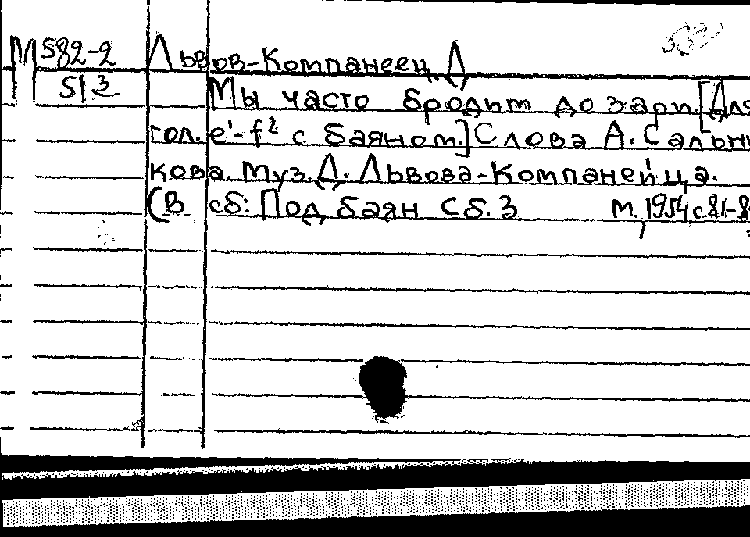 М 582-2 Львов-Компанеец Д
513 Мы часто бродим до зари. [Для
гол. e¹-f² с баяном.] Слова А. Сальни
кова. Муз. Д. Львова-Компанейца.
(В сб: Под баян Сб. 3 М, 1954, с 81-8